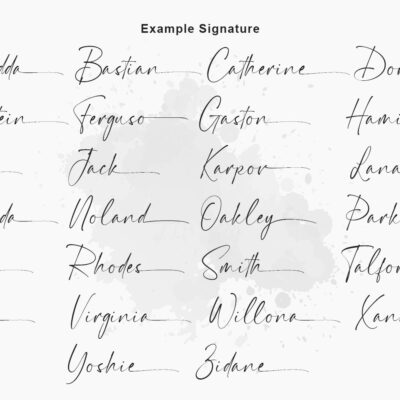 Example Signature
dda Bastian Catherine Dor
tein Ferguso Gaston Hami
Jack Karpov Lana
da Noland Oakley Park
Rhodes Smith Talfor
Virginia Willona Xan
Yoshie Zidane